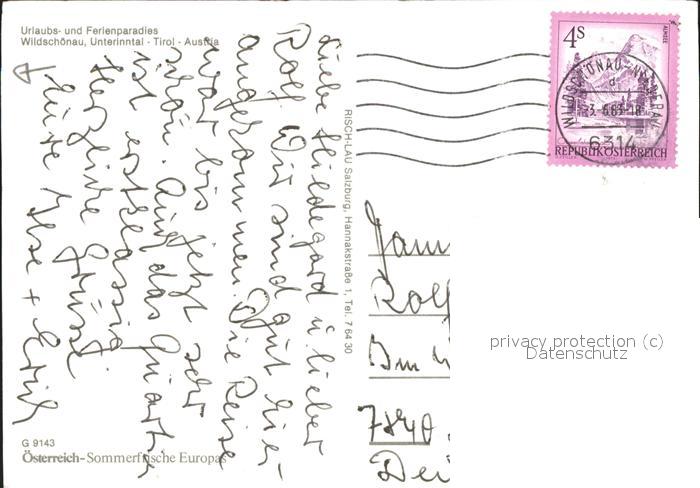 Urlaubs- und Ferienparadies
Wildschönau, Unterinntal - Tirol - Austria
Liebe Hildegard u. lieber
Rolf! Wir sind gut hier
angekommen. Die Reise
war bis jetzt sehr
schön. Auch das Quartier
ist erstklassig
Herzliche Grüsse
Eure Ilse + Erich
RISCH-LAU Salzburg, Hannakstraße 1, Tel. 7 64 30
4S
ALMSEE
WILDSCHÖNAU-NIEDERAU
6314
REPUBLIK ÖSTERREICH
Fam
Rolf
Im
7840
Dei
privacy protection (c)
Datenschutz
G 9143
Österreich-Sommerfrische Europas